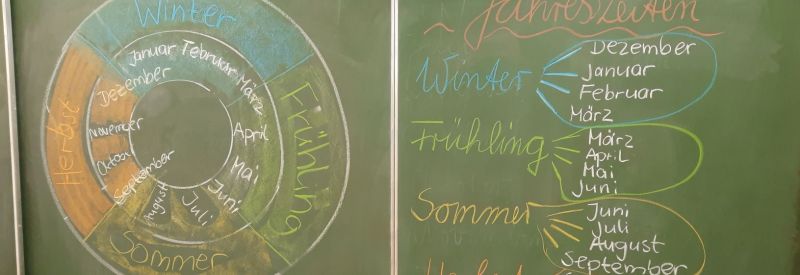 Winter
Januar Februar März
April
Mai
Juni
Juli
August
September
Oktober
November
Dezember
Frühling
Sommer
Herbst
~ Jahreszeiten
Winter
Dezember
Januar
Februar
März
Frühling
März
April
Mai
Juni
Sommer
Juni
Juli
August
September
Herbst